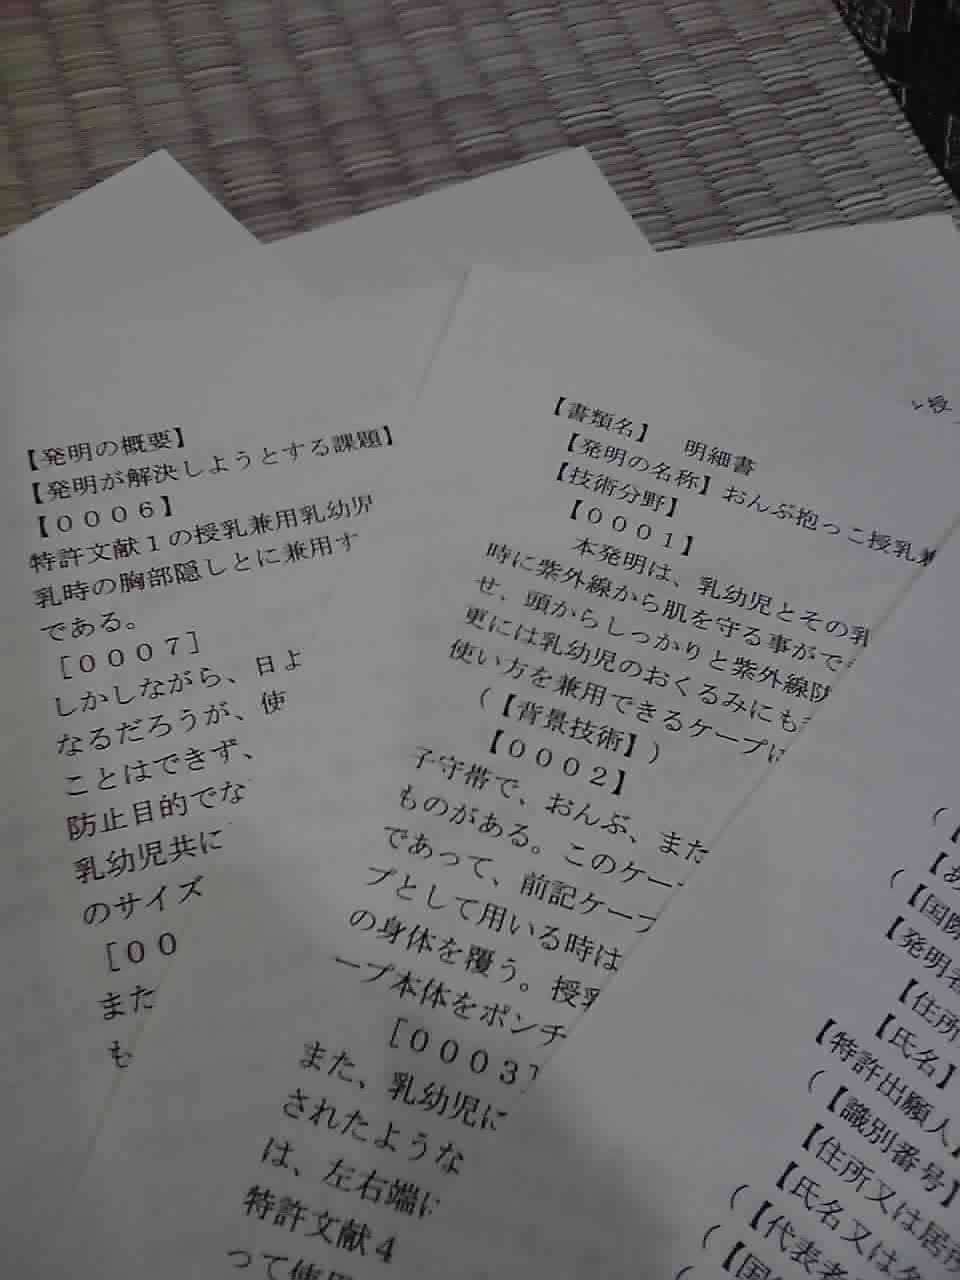 【発明の概要】
【発明が解決しようとする課題】
【０００６】
特許文献１の授乳兼用乳幼児
乳時の胸部隠しとに兼用す
である。
［０００７］
しかしながら、日よ
なるだろうが、使
ことはできず、
防止目的でな
乳幼児共に
のサイズ
［００
また
も
【書類名】　明細書
【発明の名称】おんぶ抱っこ授乳兼
【技術分野】
【０００１】
本発明は、乳幼児とその乳
時に紫外線から肌を守る事がで
せ、頭からしっかりと紫外線防
更には乳幼児のおくるみにも
使い方を兼用できるケープに
（【背景技術】）
【０００２】
子守帯で、おんぶ、また
ものがある。このケー
であって、前記ケープ
プとして用いる時は
の身体を覆う。授乳
ープ本体をポンチ
［０００３］
また、乳幼児に
されたような
は、左右端に
特許文献４
って使用
（【
【あ
（【国際
【発明者
【住所
【氏名】
【特許出願人
（【識別番号】
【住所又は居所
【氏名又は名
（【代表者
（【国